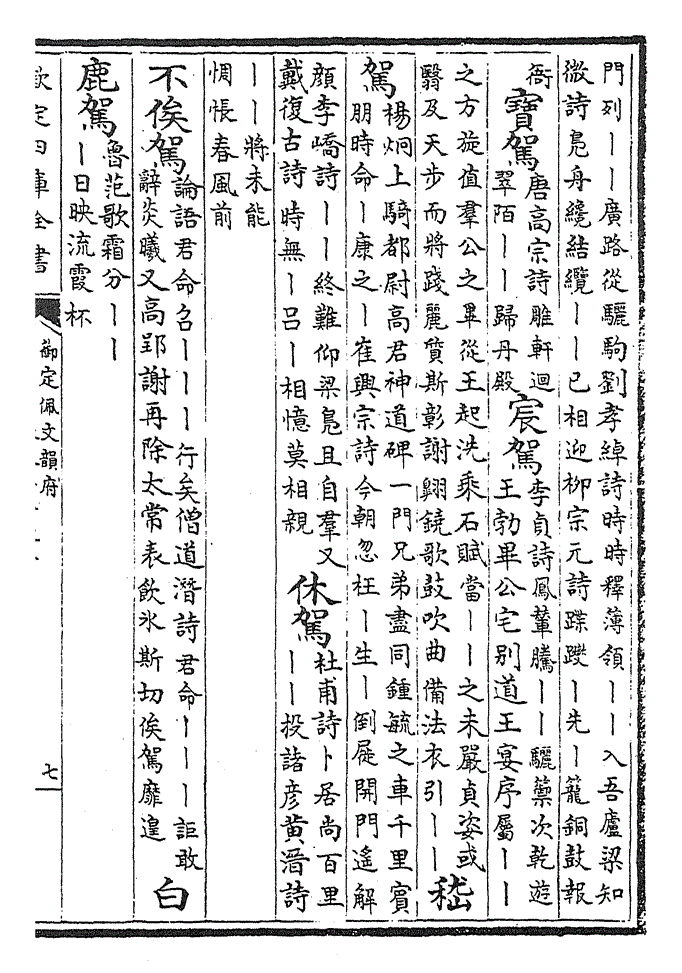 門列｜｜廣路從驪駒劉孝綽詩時時釋簿領｜｜入吾廬梁知
微詩鳧舟纔結纜｜｜已相迎柳宗元詩蹀躞｜先｜籠銅鼓報
衙
寶駕唐高宗詩雕軒迴
翠陌｜｜歸丹殿
宸駕李貞詩鳳輦騰｜｜驪蘂次乾遊
王勃畢公宅别道王宴序屬｜｜
之方旋值羣公之畢從王起洗乘石賦當｜｜之未嚴貞姿或
翳及天步而將踐麗質斯彰謝鐃歌鼓吹曲備法衣引｜｜
嵇
駕楊炯上騎都尉高君神道碑一門兄弟盡同鍾毓之車千里賓
朋時命｜康之｜崔興宗詩今朝忽枉｜生｜倒屣開門遙解
顔李嶠詩｜｜終難仰梁鳧且自羣又
戴復古詩時無｜吕｜相憶莫相親
休駕杜甫詩卜居尚百里
｜｜投諸彦黄溍詩
｜｜將未能
惆悵春風前
不俟駕論語君命召｜｜｜行矣僧道潛詩君命｜｜｜詎敢
辭炎曦又高郢謝再除太常表飲氷斯切俟駕靡遑
白
鹿駕魯范歌霜分｜｜
｜日映流霞杯
欽定四庫全書
御定佩文韻府
七